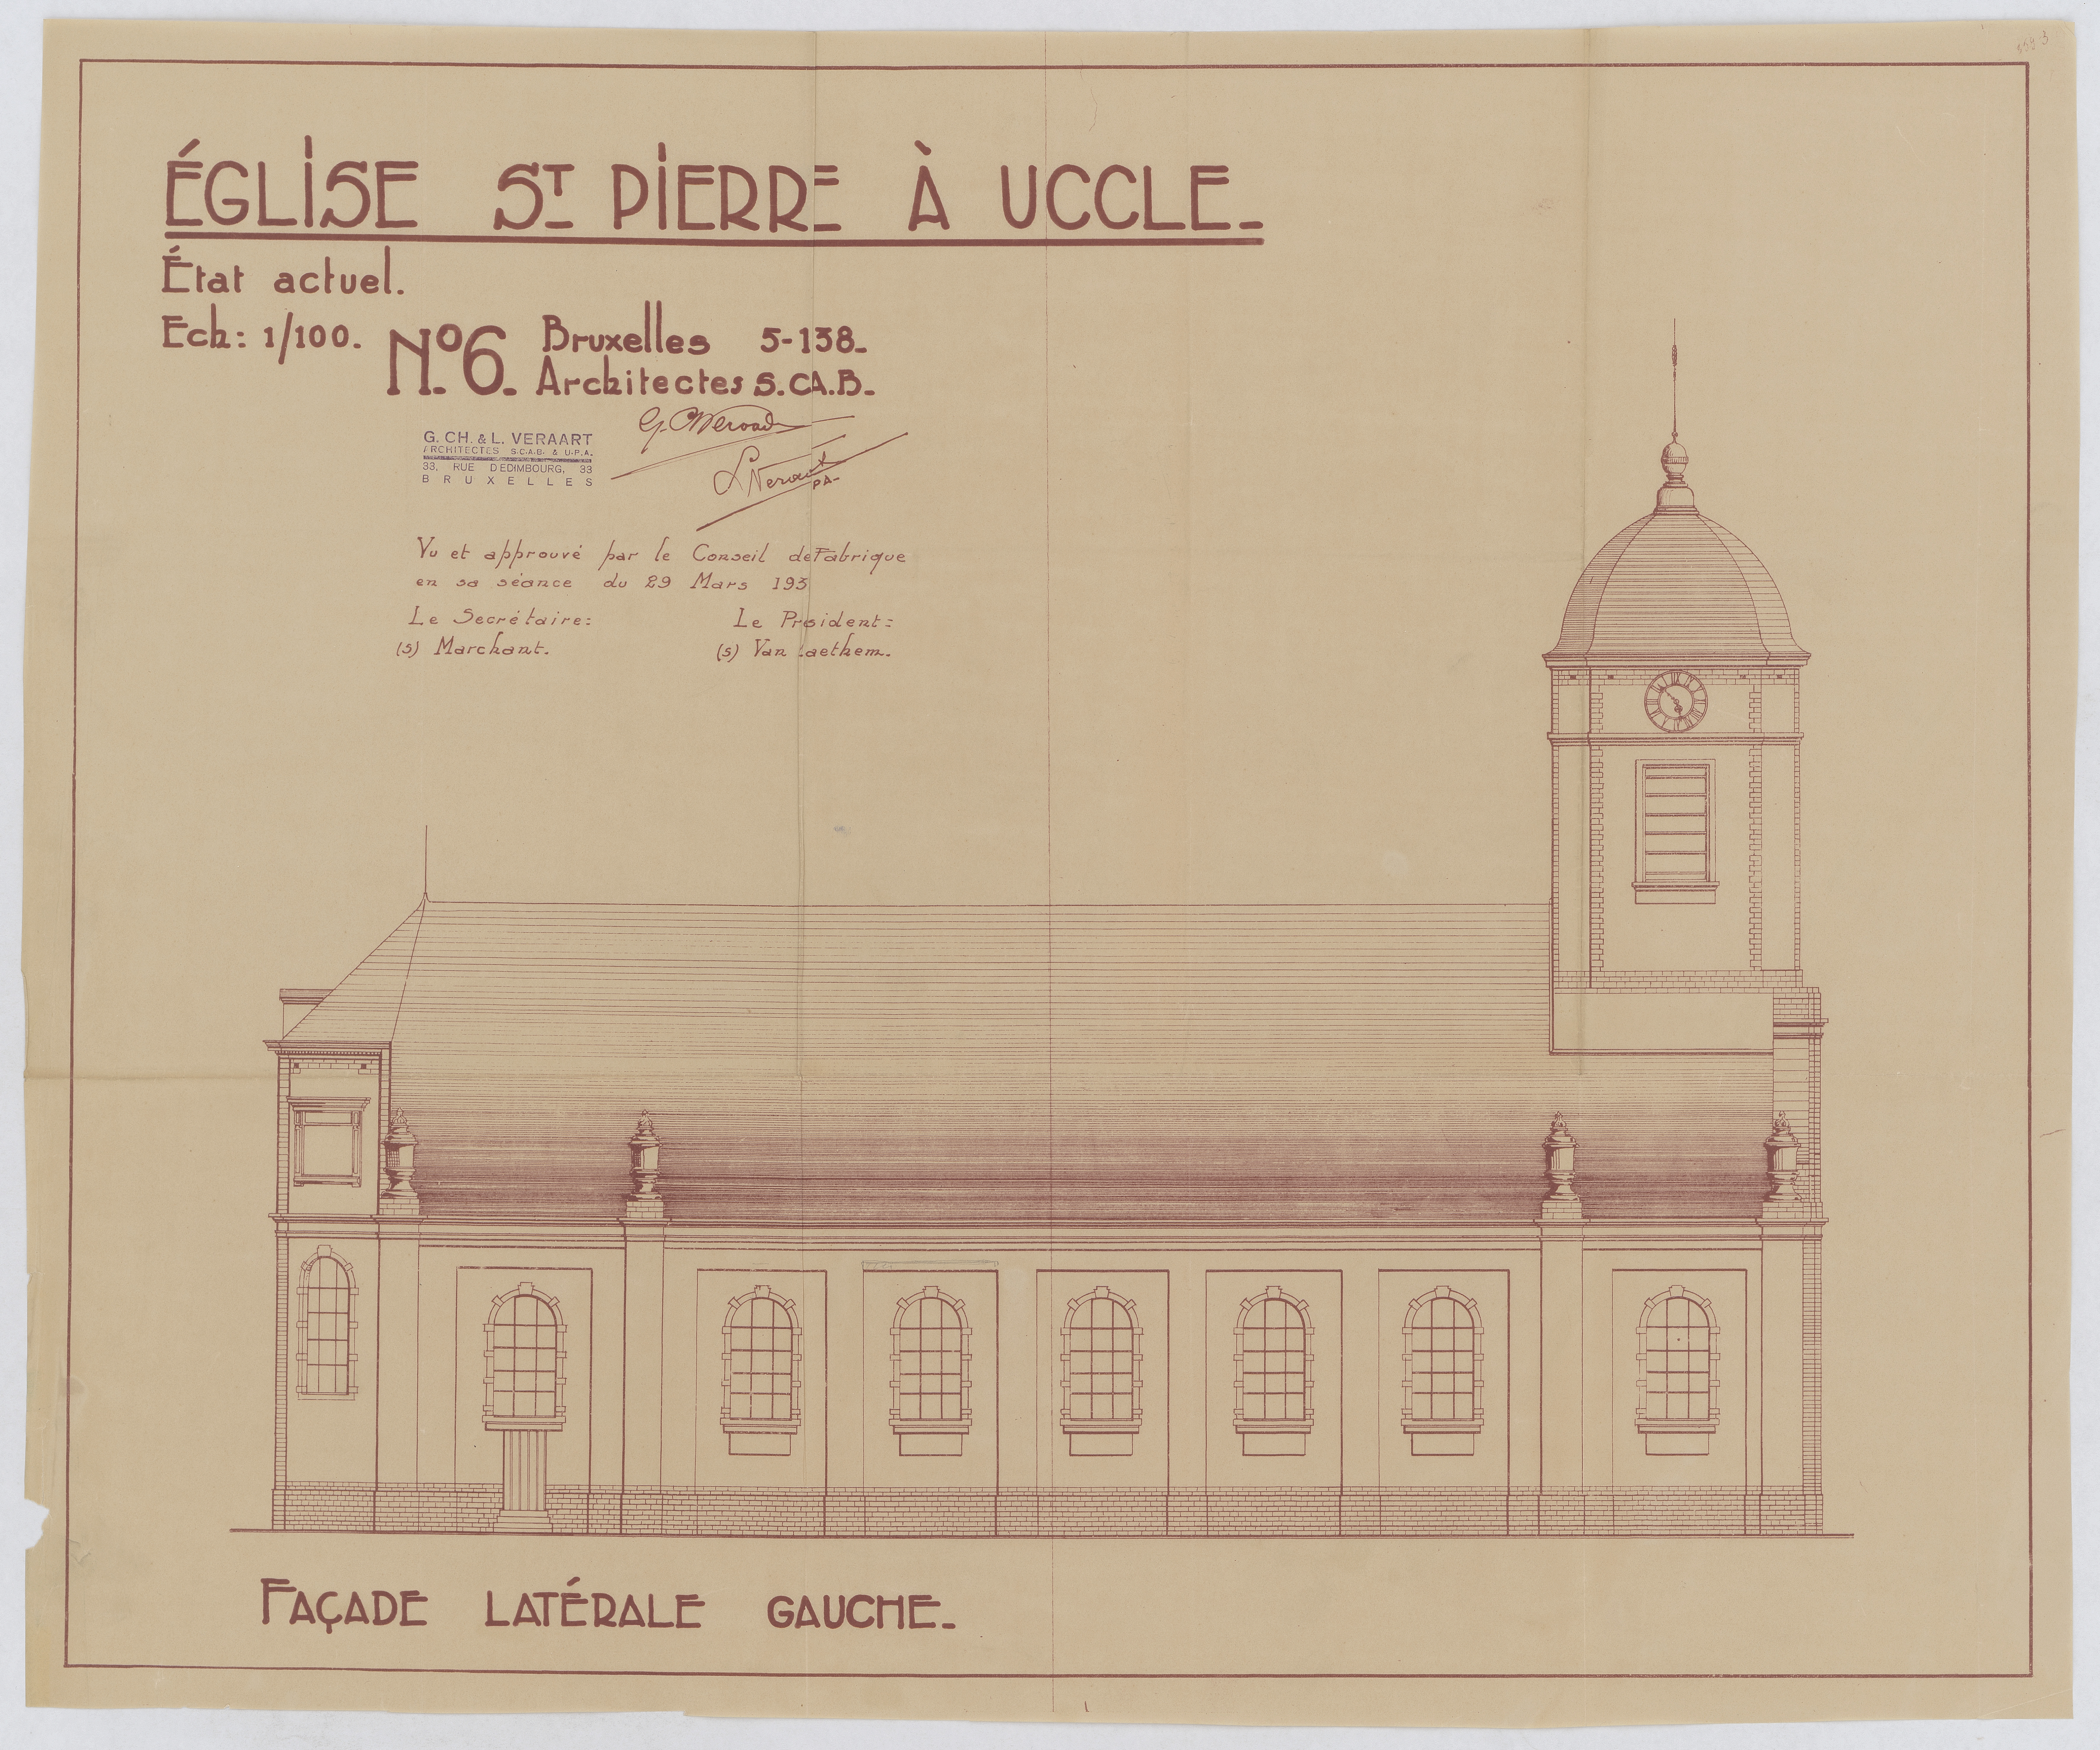 ÉGLISE ST PIERRE À UCCLE_
État actuel.
Ech: 1/100. No6. Bruxelles 5-138_
Architectes S.CA.B_
G. CH. & L. VERAART
ARCHITECTES S.C.A.B. & U.P.A.
33, RUE D'EDIMBOURG, 33
BRUXELLES
Vu et approuvé par le Conseil de Fabrique
en sa séance du 29 Mars 193
Le Secrétaire: Le Président:
(s) Marchant. (s) Van Laethem.
FAÇADE LATÉRALE GAUCHE_